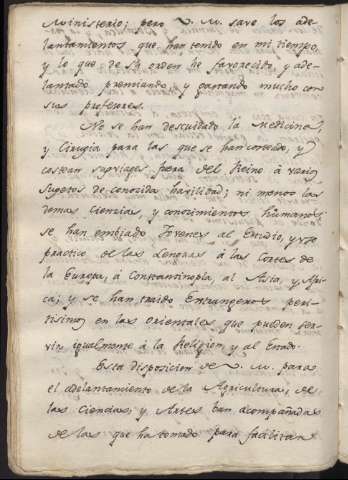 Ministerio; pero V. M. save los ade-
lantamientos que han tenido en mi tiempo,
y lo que de su orden he favorecido, y ade-
lantado, premiando y gastando mucho con
sus profesores.
No se han descuidado la Medicina,
y Cirugia para las que se han concedo, y
costean sus viages fuera del Reino à varios
Sugetos de conocida havilidad; ni menos las
demas ciencias y conocimientos humanos:
se han embiado Jovenes al Estudio, y uso
practico de las Lenguas à las Cortes de
la Europa, à Constantinopla, al Asia, y Afri-
ca; y se han traido Extrangeros peri-
tisimos en las orientales que pueden ser-
vir igualmente à la Religion y al Estado.
Esta disposicion de V. M. para
el adelantamiento de la Agricultura, de
las Ciencias, y Artes han acompañado
de las que ha tomado para facilitar